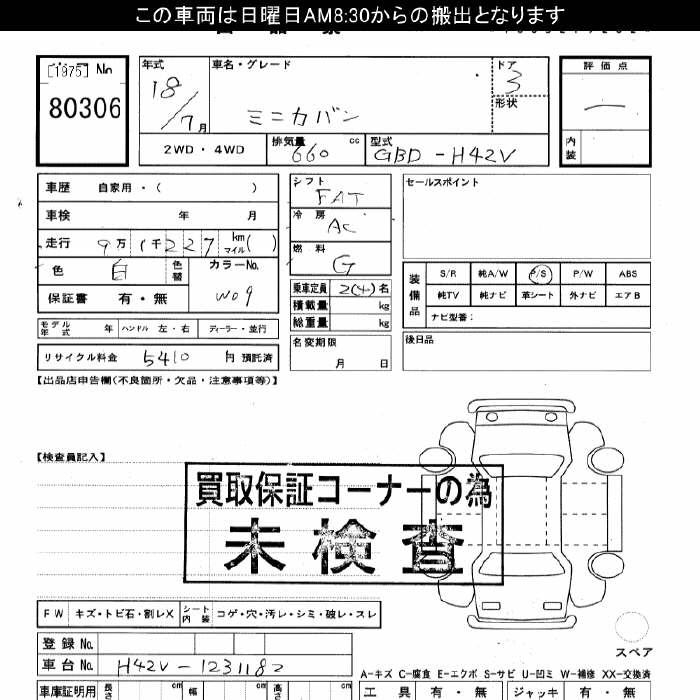 この車両は日曜日AM8:30からの搬出となります
[1975] No
80306
年式 車名・グレード ドア 評価点
18/7月 ミニカバン 3 —
形状
2WD・4WD 排気量 660 cc 型式 GBD-H42V 内装
車歴 自家用・( ) シフト FAT セールスポイント
車検 年 月 冷房 AC
走行 9万1千227 km マイル( ) 燃料 G
色 白 色替 カラーNo. W09
保証書 有・無
乗車定員 2(4)名
積載量 kg
総重量 kg
装備品 S/R 純A/W P/S P/W ABS
純TV 純ナビ 革シート 外ナビ エアB
ナビ型番:
モデル年式 年 ハンドル 左・右 ディーラー・並行
名変期限 月 日
後日品
リサイクル料金 5410 円 預託済
【出品店申告欄(不良箇所・欠品・注意事項等)】
【検査員記入】
買取保証コーナーの為
未検査
FW キズ・トビ石・割レX シート内装 コゲ・穴・汚レ・シミ・破レ・スレ
登録No.
車台No. H42V-1231182
スペア
A-キズ C-腐食 E-エクボ S-サビ U-凹ミ W-補修 XX-交換済
車庫証明用 長さ cm 幅 cm 高さ cm 工具 有・無 ジャッキ 有・無